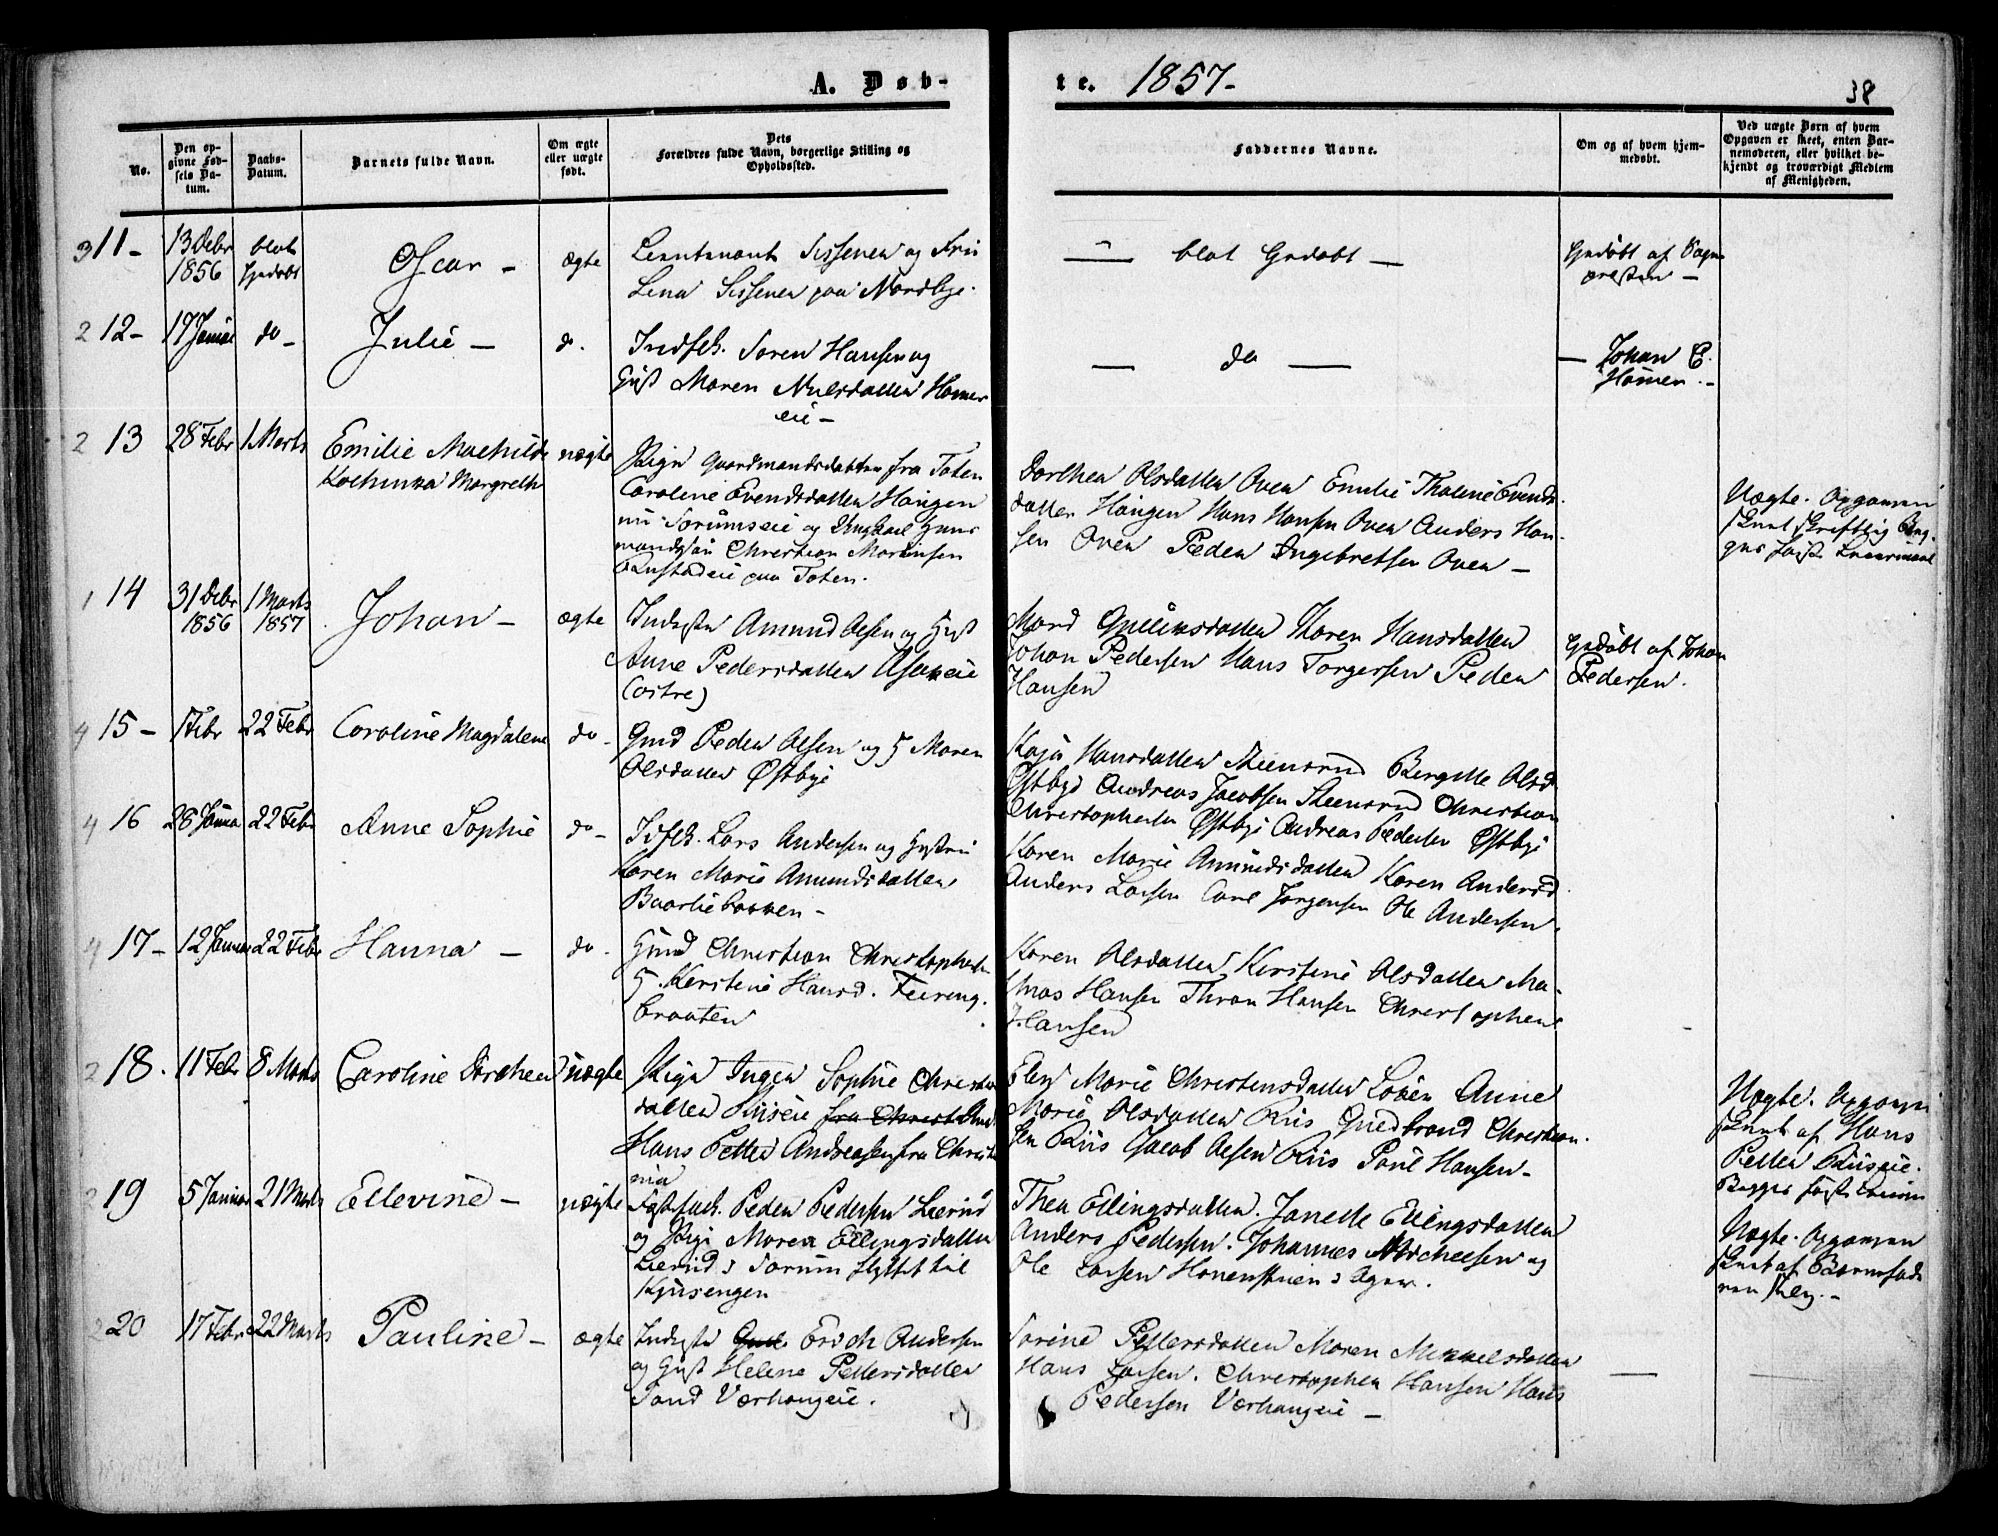 A. Døb-
te. 1857-
38
No.
Den op-
givne Fød-
sels Da-
tum.
Daabs-
Datum.
Barnets fulde Navn.
Om ægte
eller uægte
født.
Dets
Forældres fulde Navn, borgerlige Stilling og
Opholdssted.
Faddernes Navne.
Om og af hvem hjem-
medøbt.
Ved uægte Børn af hvem
Opgaven er skeet, enten Bar-
nemoderen, eller hvilket be-
kjendt og troværdigt Medlem
af Menigheden.
3 11-
13 Debr
1856
blot
Hjdøbt
Oscar -
ægte
Lieutenant Sissener og Frue
Lena Sissener paa Nordbye.
— blot Hjdøbt —
Hjdøbt af Sogne
præsten -
2 12-
17 Januar
do -
Julie -
do.
Indsk. Søren Hansen og
Hust Maren Nielsdatter Hamer
eie -
— do —
— Johan E.
Hamer. -
2 13
28 Febr
1 Marts
Emilie Mathilde
Kathinka Margrethe
uægte
Pige Gaardmandsdatter fra Toten
Caroline Evendsdatter Haugen
nu Sørumseie og Ungkarl Huus
mandssøn Christian Martinsen
paa Toten.
Dorthea Olsdatter Oven Emilie Thaline Evends
datter Haugen Hans Hansen Oven Anders Han
sen Oven Peder Ingebretsen Oven -
Uægte. Opgaven
skeet skriftlig
1 14
31 Debr
1856
1 Marts
1857
Johan -
ægte
Inderste Amund Olsen og Hust
Anne Pedersdatter Asakeie
(østre)
Mard Gulliksdatter Karen Hansdatter
Johan Pedersen Hans Torgersen Peder
Hansen
Hjdøbt af Johan
Pedersen.
4 15-
1 Febr
22 Febr
Caroline Magdalene
do -
Gmd Peder Olsen og H Maren
Olsdatter Østbye
Kaja Hansdatter Steensrud Birgitte Olsd
Østbye Andreas Jacobsen Steensrud Christian
Christophersen Østbye Andreas Pedersen Østbye
4 16
28 Janua
22 Febr
Anne Sophie
do -
Idsk. Lars Andersen og Hustru
Karen Marie Amundsdatter
Baarliebakken -
Karen Marie Amundsdatter Karen Andersd
Anders Larsen Carl Jørgensen Ole Andersen.
4 17-
12 Januar
22 Febr
Hanna -
do.
Hmd Christian Christophersen
H. Kirstine Hansd. Feiring.
braaten
Karen Olsdatter Kirstine Olsdatter Ma-
thias Hansen Thron Hansen Christopher
Hansen
2 18.
11 Febr
8 Marts
Caroline Dorthea
uægte
Pige Inger Sophie Christians
datter Riiseie fra Christ
Hans Petter Andreasen fra Christia
nia
Elen Marie Christensdatter Løken Anne
Marie Olsdatter Riis Gudbrand Christian.
sen Riis Jacob Olsen Riis Poul Hansen -
Uægte. Opgaven
skeet af Hans
Petter Riiseie.
Begges første
2 19
5 Januar
21 Marts
Ellevine -
uægte
Peder Pedersen Lierud
og Pige Maren Ellingsdatter
Lierud i Sørum flyttet til
Kjusengen
Thea Ellingsdatter. Janette Ellingsdatter
Anders Pedersen. Johannes Michelsen og
Ole Larsen
Uægte. Opgaven
skeet af Barnefade
ren selv. -
2 20
17 Febr
22 Marts
Pauline -
ægte
Inderste Erich Andersen
og Hust Helene Pettersdatter
Sand Værhaugeie.
Sørine Pettersdatter Maren Mikkelsdatter
Hans Larsen. Christopher Hansen Hans
Pedersen Værhaugeie -